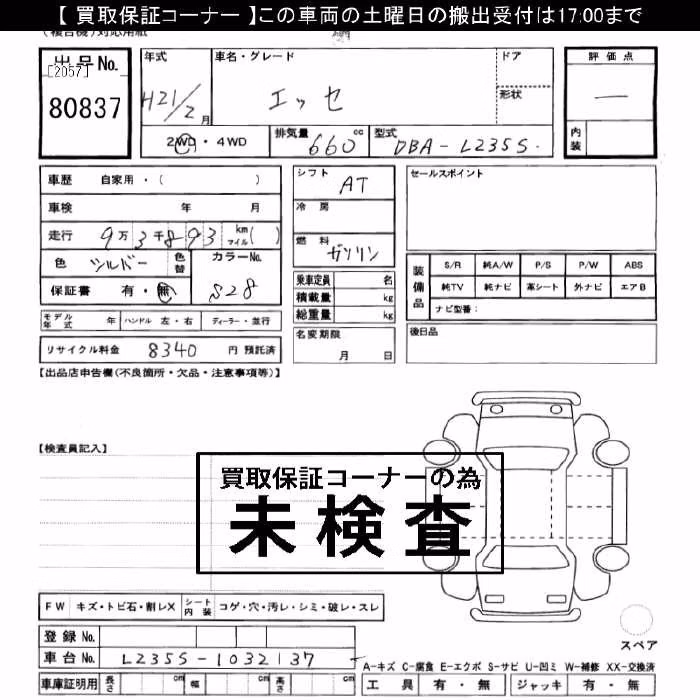 【 買取保証コーナー 】この車両の土曜日の搬出受付は17:00まで
(複合機)対応用紙
出品No. [2057] 80837
年式 H21/2月
車名・グレード エッセ
ドア
形状
評価点 —
内装
2WD・4WD
排気量 660 cc
型式 DBA-L235S.
車歴 自家用・( )
車検 年 月
走行 9万3千893 km マイル( )
色 シルバー 色替
カラーNo. S28
保証書 有・無
シフト AT
冷房
燃料 ガソリン
乗車定員 名
積載量 kg
総重量 kg
名変期限 月 日
セールスポイント
装備品 S/R 純A/W P/S P/W ABS
純TV 純ナビ 革シート 外ナビ エアB
ナビ型番:
後日品
モデル年式 年 ハンドル 左・右 ディーラー・並行
リサイクル料金 8340 円 預託済
【出品店申告欄(不良箇所・欠品・注意事項等)】
【検査員記入】
買取保証コーナーの為
未検査
FW キズ・トビ石・割レX シート内装 コゲ・穴・汚レ・シミ・破レ・スレ
登録No.
車台No. L235S-1032137
車庫証明用 長さ cm 幅 cm 高さ cm
スペア
A-キズ C-腐食 E-エクボ S-サビ U-凹ミ W-補修 XX-交換済
工具 有・無 ジャッキ 有・無